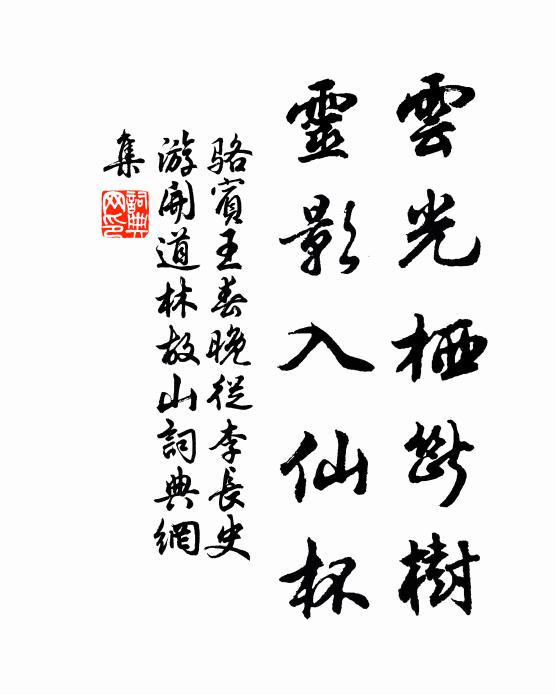 雲光栖断樹
靈影入仙杯
駱賓王春晚從李長史
游開道林故山詞典網
集
詞典网印